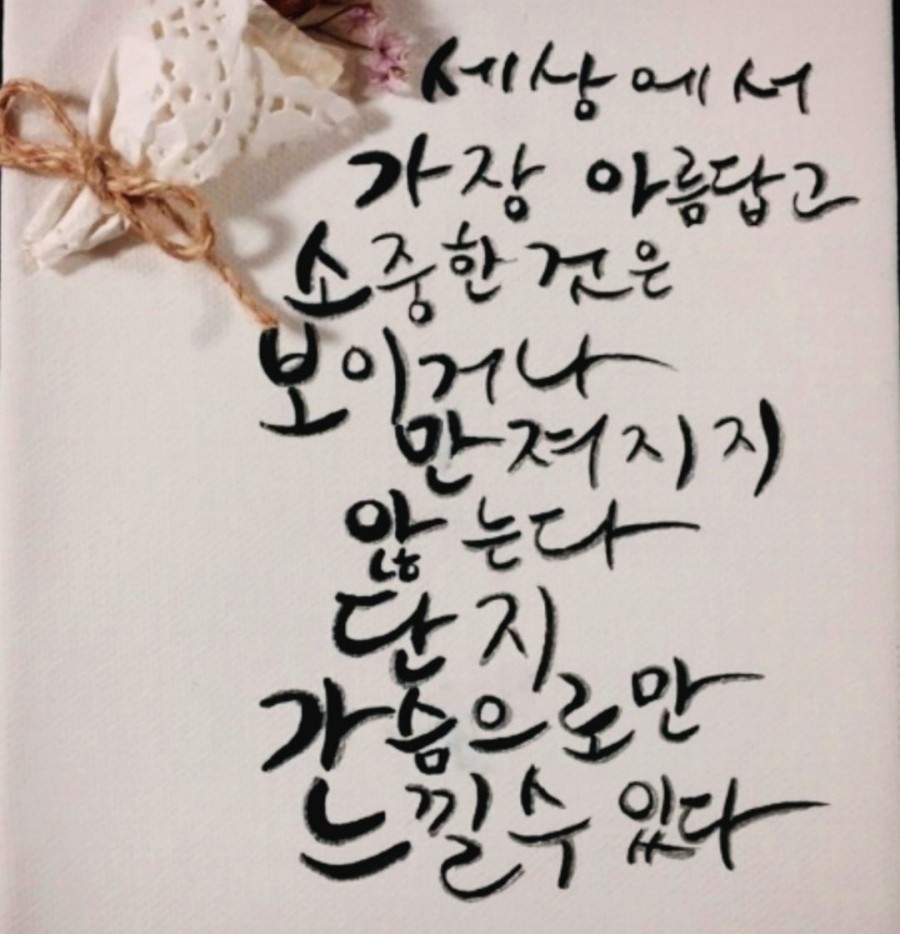 세상에서
가장 아름답고
소중한 것은
보이거나
만져지지
않는다
단지
가슴으로만
느낄수 있다